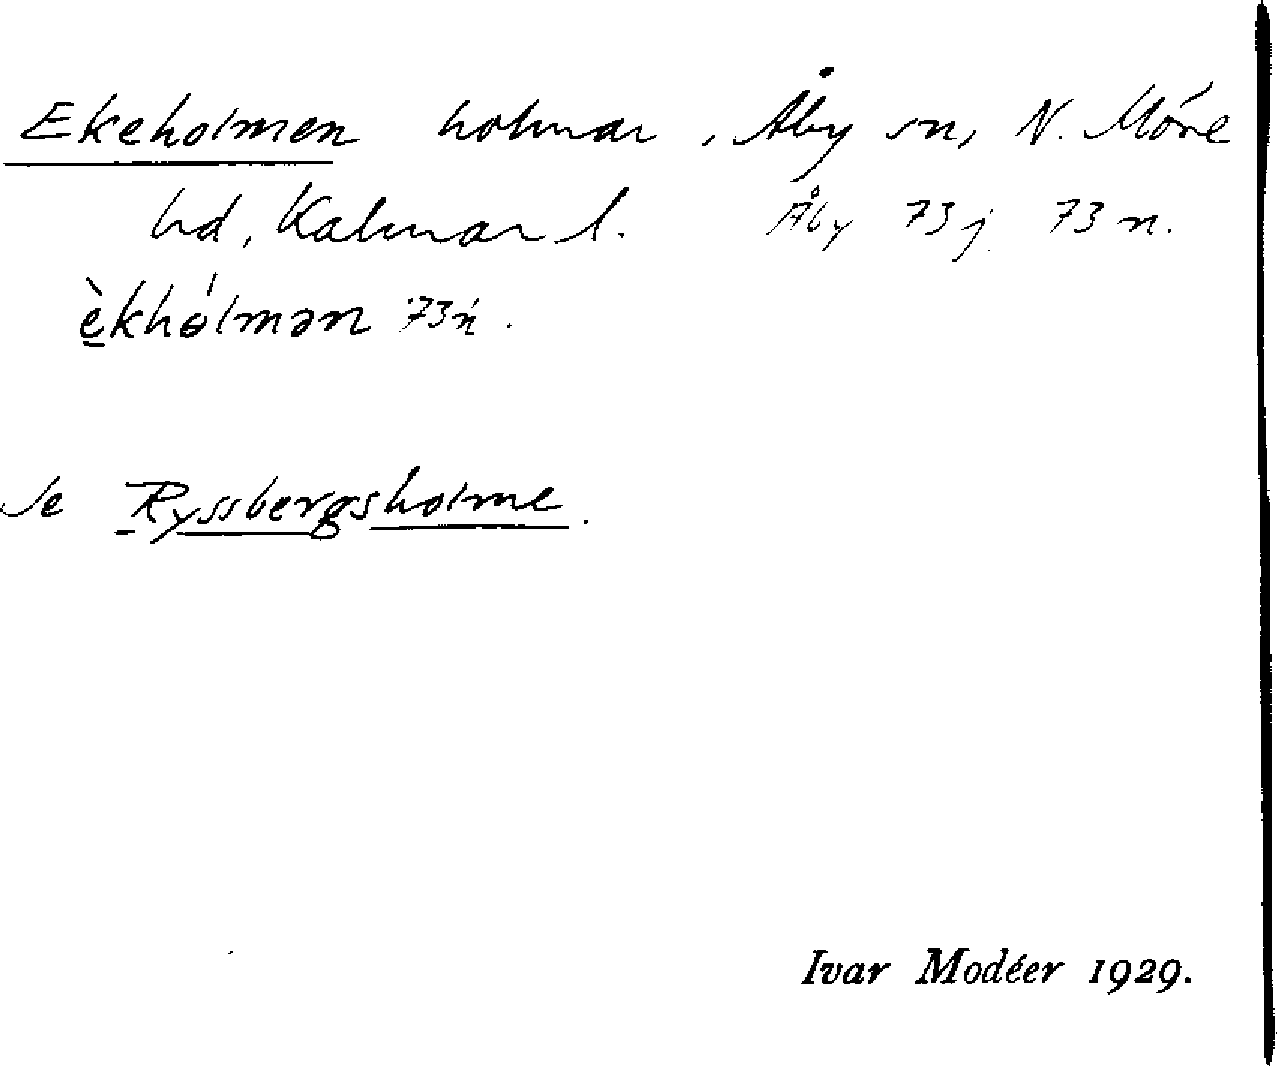 Ekeholmen holmar, Åby sn, N. Möre
hd, Kalmar l. Åby 73j 73n.
èkhólmən 73n.
Se Ryssbergsholme.
Ivar Modéer 1929.